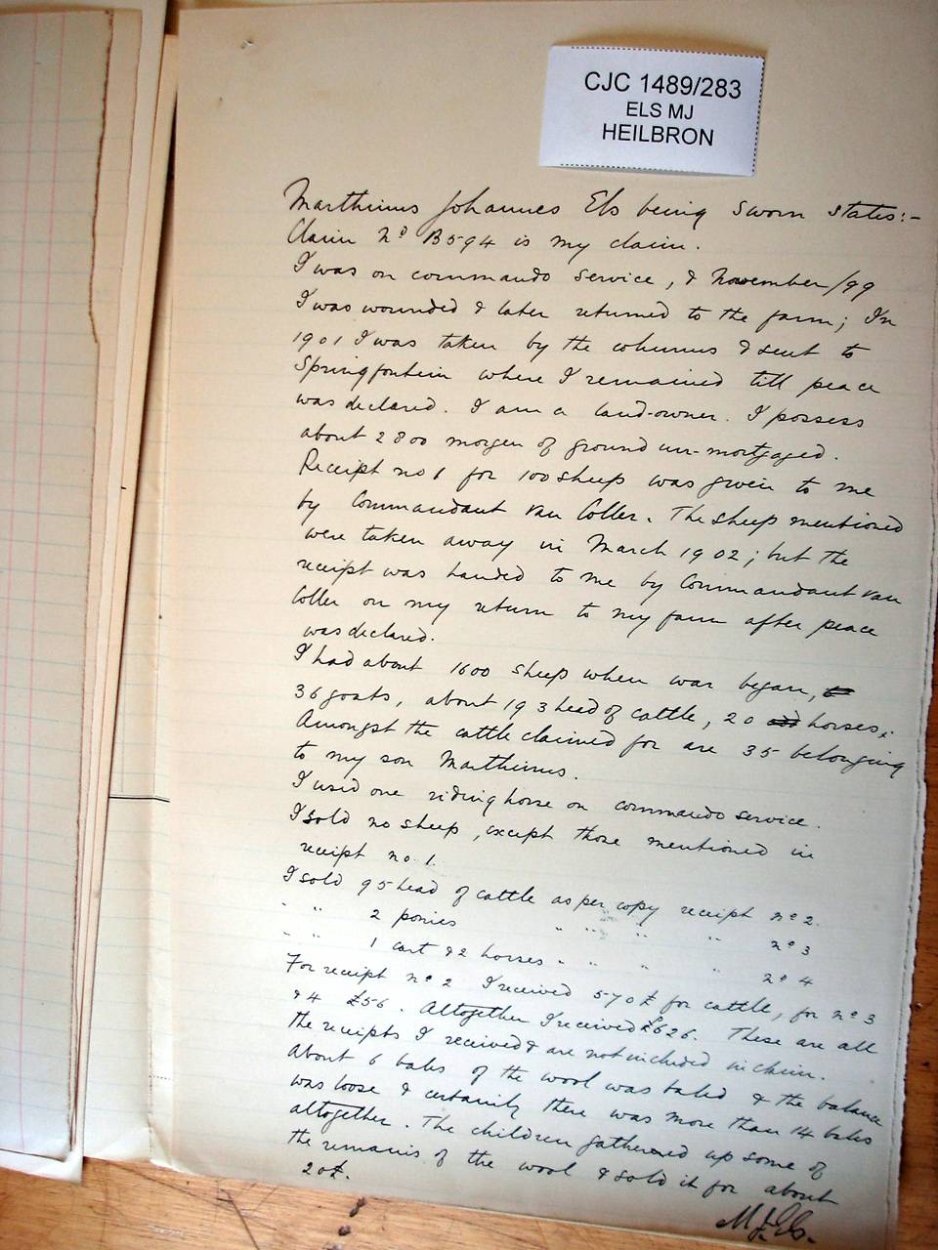 CJC 1489/283
ELS MJ
HEILBRON
Marthinus Johannes Els being sworn states:-
Claim No B594 is my claim.
I was on commando service, & November/99
I was wounded & later returned to the farm; In
1901 I was taken by the columns & sent to
Springfontein where I remained till peace
was declared. I am a land-owner. I possess
about 2800 morgen of ground un-mortgaged.
Receipt no 1 for 100 sheep was given to me
by Commandant Van Coller. The sheep mentioned
were taken away in March 1902; but the
receipt was handed to me by Commandant van
Coller on my return to my farm after peace
was declared.
I had about 1600 sheep when war began,
36 goats, about 193 head of cattle, 20 horses.
Amongst the cattle claimed for are 35 belonging
to my son Marthinus.
I used one riding horse on commando service.
I sold no sheep, except those mentioned in
receipt no 1.
I sold 95 head of cattle as per copy receipt no 2.
" " 2 ponies " " " " no 3
" " 1 cart & 2 horses " " " " no 4
For receipt no 2 I received 570£ for cattle, for no 3
& 4 £56. Altogether I received £626. These are all
the receipts I received & are not included in claim.
About 6 bales of the wool was baled & the balance
was loose & certainly there was more than 14 bales
altogether. The children gathered up some of
the remains of the wool & sold it for about
20£.
M J Els.